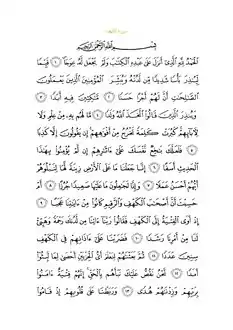 بِسْمِ اللَّهِ الرَّحْمَٰنِ الرَّحِيمِ
الْحَمْدُ لِلَّهِ الَّذِي أَنزَلَ عَلَىٰ عَبْدِهِ الْكِتَٰبَ وَلَمْ يَجْعَل لَّهُ عِوَجَا ١ قَيِّمًا
لِّيُنذِرَ بَأْسًا شَدِيدًا مِّن لَّدُنْهُ وَيُبَشِّرَ الْمُؤْمِنِينَ الَّذِينَ يَعْمَلُونَ
الصَّٰلِحَٰتِ أَنَّ لَهُمْ أَجْرًا حَسَنًا ٢ مَّٰكِثِينَ فِيهِ أَبَدًا ٣
وَيُنذِرَ الَّذِينَ قَالُوا اتَّخَذَ اللَّهُ وَلَدًا ٤ مَّا لَهُم بِهِ مِنْ عِلْمٍ وَلَا
لِءَابَائِهِمْ كَبُرَتْ كَلِمَةً تَخْرُجُ مِنْ أَفْوَٰهِهِمْ إِن يَقُولُونَ إِلَّا كَذِبًا
٥ فَلَعَلَّكَ بَٰخِعٌ نَّفْسَكَ عَلَىٰ ءَاثَٰرِهِمْ إِن لَّمْ يُؤْمِنُوا بِهَٰذَا
الْحَدِيثِ أَسَفًا ٦ إِنَّا جَعَلْنَا مَا عَلَى الْأَرْضِ زِينَةً لَّهَا لِنَبْلُوَهُمْ
أَيُّهُمْ أَحْسَنُ عَمَلًا ٧ وَإِنَّا لَجَٰعِلُونَ مَا عَلَيْهَا صَعِيدًا جُرُزًا ٨ أَمْ
حَسِبْتَ أَنَّ أَصْحَٰبَ الْكَهْفِ وَالرَّقِيمِ كَانُوا مِنْ ءَايَٰتِنَا عَجَبًا ٩
إِذْ أَوَى الْفِتْيَةُ إِلَى الْكَهْفِ فَقَالُوا رَبَّنَا ءَاتِنَا مِن لَّدُنكَ رَحْمَةً وَهَيِّئْ
لَنَا مِنْ أَمْرِنَا رَشَدًا ١٠ فَضَرَبْنَا عَلَىٰ ءَاذَانِهِمْ فِي الْكَهْفِ
سِنِينَ عَدَدًا ١١ ثُمَّ بَعَثْنَٰهُمْ لِنَعْلَمَ أَيُّ الْحِزْبَيْنِ أَحْصَىٰ لِمَا لَبِثُوا
أَمَدًا ١٢ نَّحْنُ نَقُصُّ عَلَيْكَ نَبَأَهُم بِالْحَقِّ إِنَّهُمْ فِتْيَةٌ ءَامَنُوا
بِرَبِّهِمْ وَزِدْنَٰهُمْ هُدًى ١٣ وَرَبَطْنَا عَلَىٰ قُلُوبِهِمْ إِذْ قَامُوا